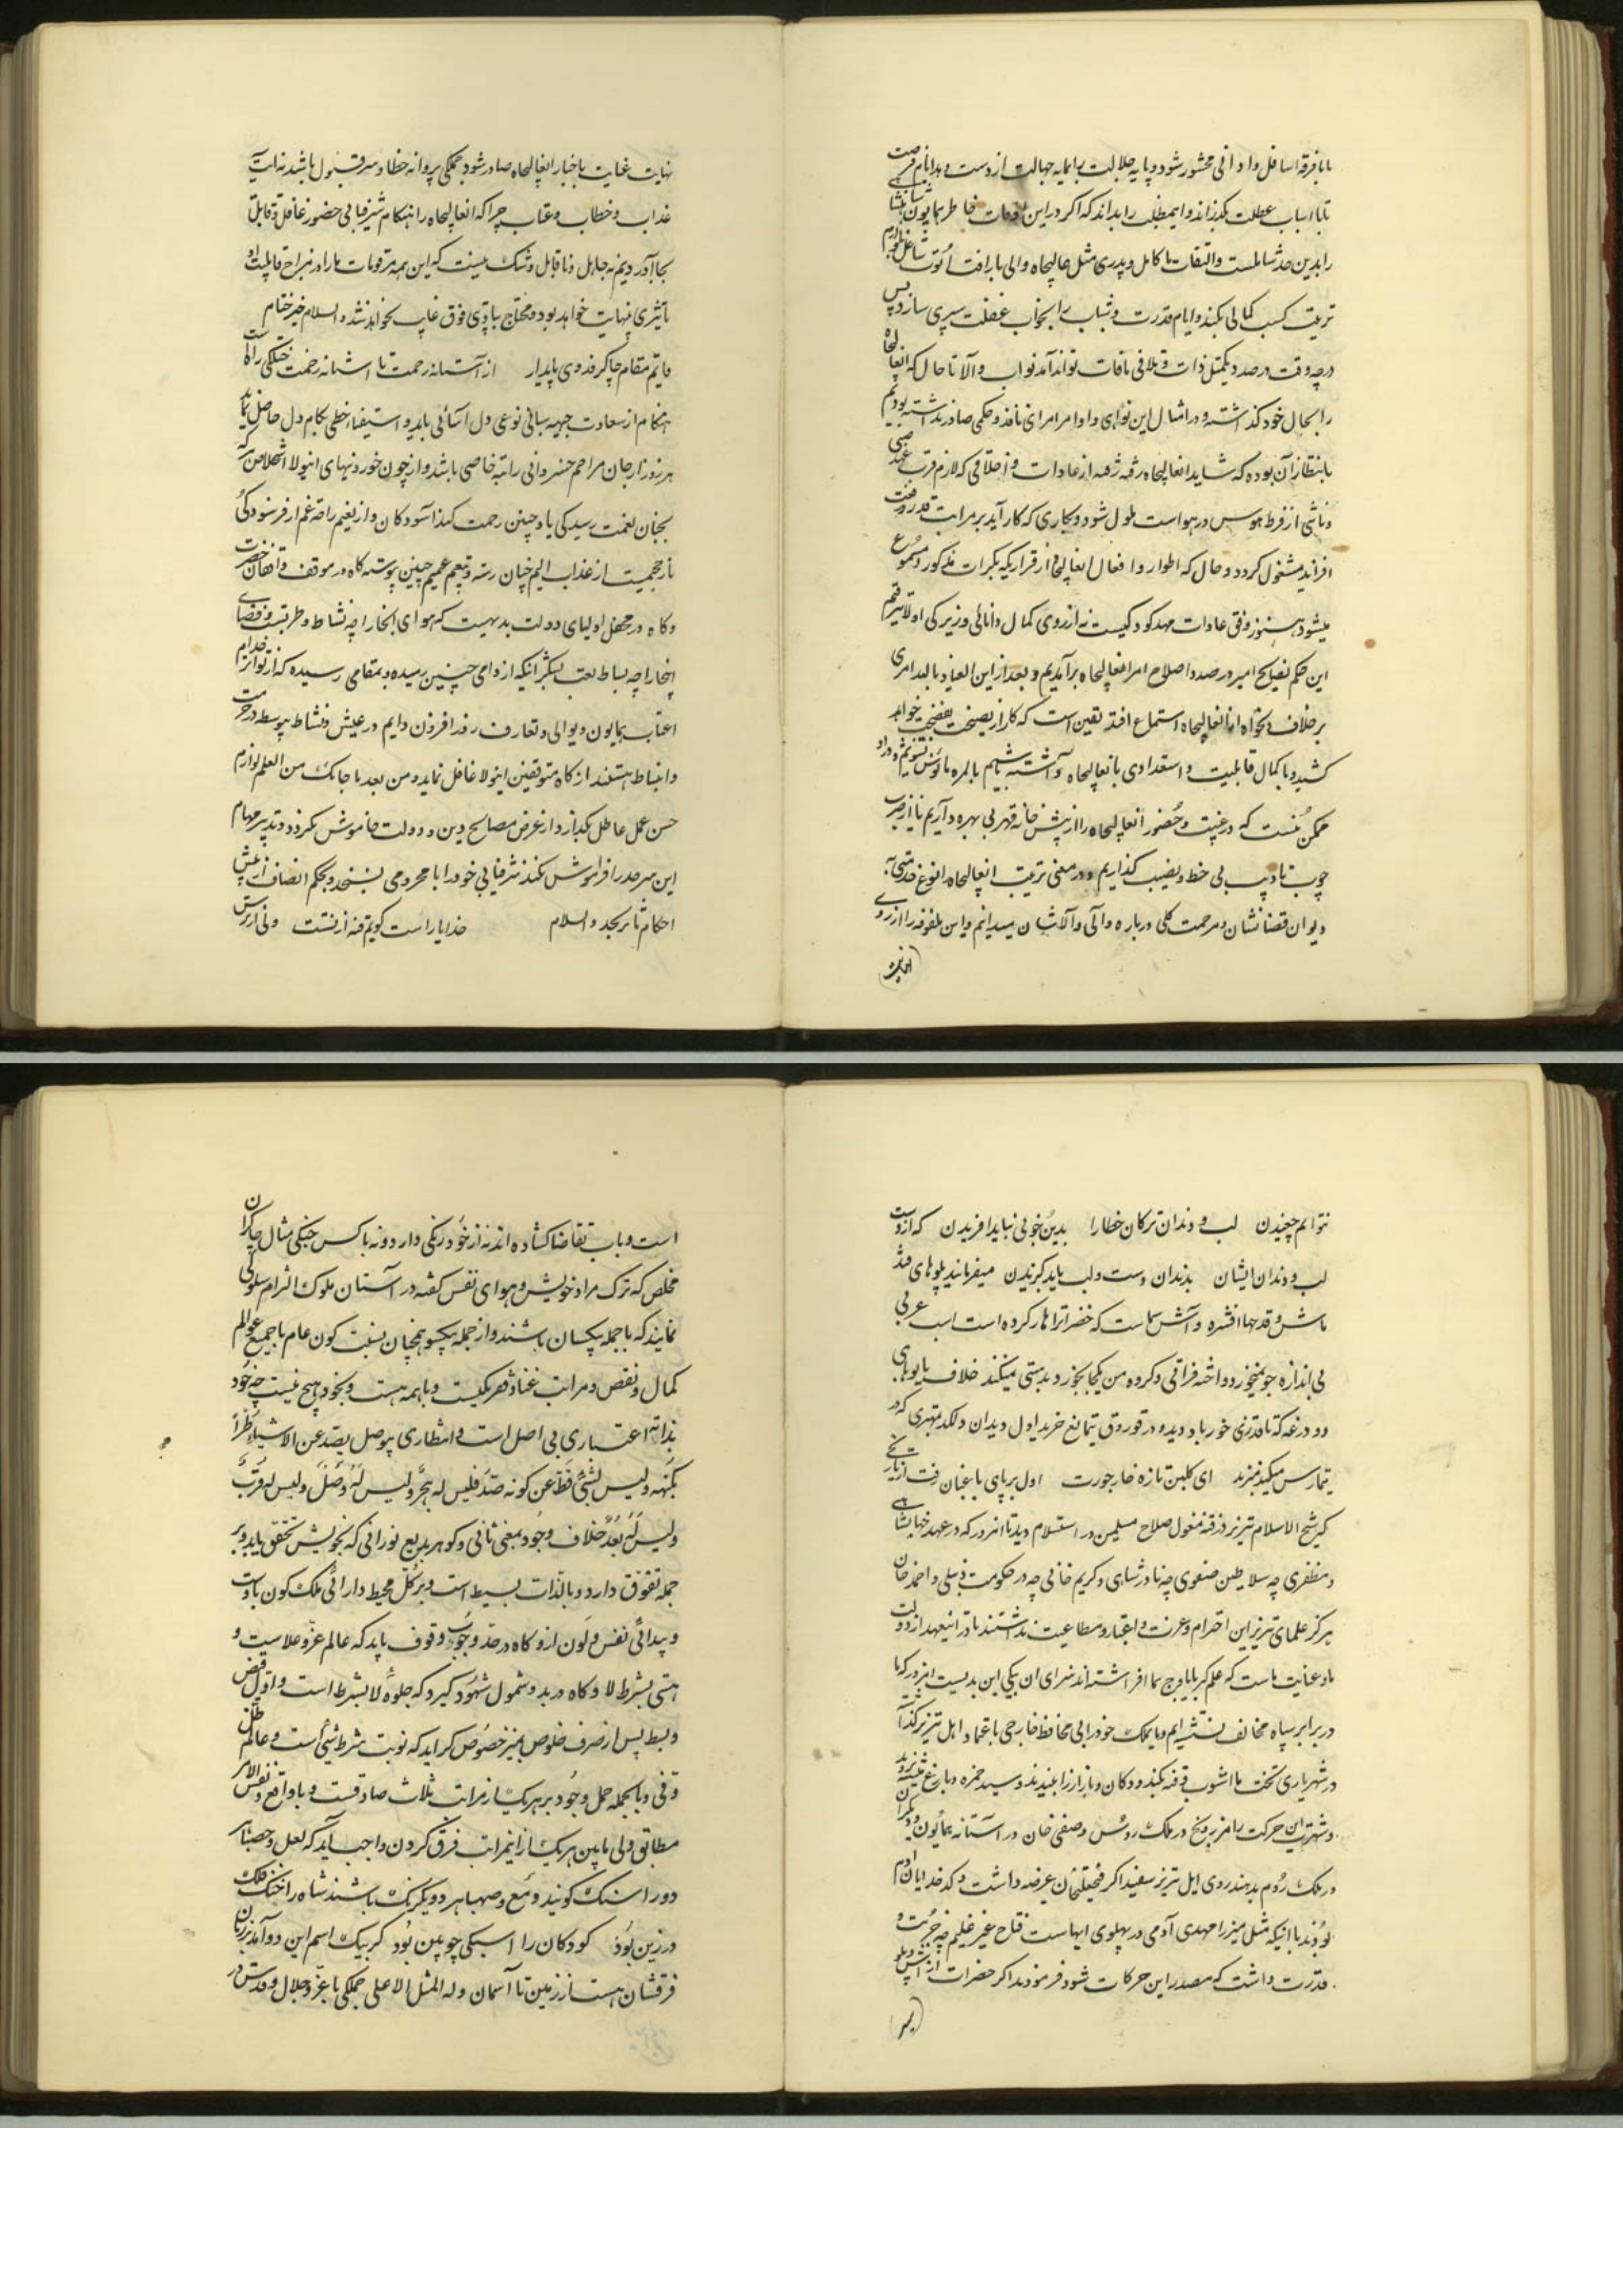 مابا فرقه اسافل و ادانی محشور شود و پایه جلالت را بمایه جهالت از دست و بدایام فرصت
باسباب عطلت بگذراند و اینمطلب را بداند که اگر در این اوقات خاطر همایون شاهنشاهی
را بدین حد شاملست و التفات ما کامل و پدری مثل عالیجاه والی با رأفت ابوت شاغل لوازم
تربیت کسب کمالی نکند و ایام قدرت و شباب را بخواب غفلت سپری سازد پس
در چه وقت درصدد تکمیل ذات و تلافی مافات تواند آمد نواب والا تا حال که انعالیجاه
را بحال خود گذاشته و در امثال این نواهی و اوامر امرای نافذ و حکمی صادر نداشته بودیم
بانتظار آن بوده که شاید انعالیجاه رفته رفته از عادات و اخلاقی که لازم قرب عهد صبی
و ناشی از فرط هوس در هواست ملول شود و بکاری که کار آید بر مراتب قدر و رفعت
افزاید مشغول گردد و حال که اطوار و افعال انعالیجاه از قراریکه بکرات مذکور و مسموع
میشود هنوز وفق عادات مهد کودکیست نه از روی کمال دانائی و زیرکی اولا بترقیم
این حکم نصایح امیر درصدد اصلاح امر انعالیجاه برآمدیم و بعد از این العیاذ بالله امری
بر خلاف دلخواه از انعالیجاه استماع افتد یقین است که کار از نصیحت بفضیحت خواهد
کشید و با کمال قابلیت و استعدادی بانعالیجاه
ممکن نیست که در غیبت و حضور انعالیجاه را از پیش خانه قهر بی بهره داریم یا از ضرب
چوب تادیب بی حظ و نصیب گذاریم و در معنی تربیت انعالیجاه را نوع خدمتی به
دیوان قضا نشان و مرحمت کلی درباره والی والاشان میدانیم و این ملفوفه را از روی
نهایت عنایت باخبار انعالیجاه صادر شود جملگی پروانه خطا و سر قبول باشد نه آیت
عذاب و خطاب و عتاب چرا که انعالیجاه را هنگام شرفیابی حضور عاقل و قابل
بجا آوردیم نه جاهل و ناقابل و شک نیست که این همه مرقومات ما را در مزاج قابلیت او
تأثیری بنهایت خواهد بود و محتاج بتأدیبی فوق غایب نخواهد شد والسلام خیر ختام
قایم مقام چاکر فدوی پایدار    از آستانه رحمت تا آشیانه زحمت خیلکی راه است
هنگام از سعادت جبهه سائی نوعی دل آسائی یابد و استیفاء خطی بکام دل حاصل نماید
هر روز از جان مراحم خسروانی راتبه خاصی باشد و از چون خوردنیهای اینولا
بجنان نعمت رسیدگی یا و چنین رحمت کند آسودگان و از نعیم راحه غم از فرسودگی
نارجحیمیت از عذاب الیم چنان رسته و بنعیم عمیم چنین پیوسته گاه در موقف واقفان حضرت
و گاه در محفل اولیای دولت بدیهیت که هوای انجا را چه نشاط و طربست و فضای
انجا را چه بساط لعب شکر آنکه از دامی چنین رمیده و بمقامی رسیده که از توابع خدام
اعتاب همایون و یوالی و تعارف روز افزون دایم در عیش و نشاط پیوسته در حرمت
و انبساط هستند از گاه متوقفین اینولا غافل نماید و من بعد ما جائک من العلم لوازم
حسن عمل عاطل بگذارد و از غرض مصالح دین و دولت خاموش نگردد و تدبیر مهام
این سرحد را فراموش نکند شرفیابی خود را با محرومی بسنجد و بحکم انصاف از پیش
احکام ثابر بجد والسلام    خدایا راست گویم فتنه از تست    ولی از ترس
نتوانم چغیدن    لب و دندان ترکان خطا را    بدین خوبی نباید آفریدن    که از دست
لب و دندان ایشان    بدندان دست و لب باید گزیدن    میفرمایند پلوهای قند
ماش و قدحها افشره و آش ماست که حضرات را هار کرده است اسب عربی
بی اندازه جو نمیخورد و اخته فراقی ده کروه من یکجا بخورد بدمستی نمیکند خلاف یابوهای
دو درغه که تا قدری خور باد و بدو در قوروق بتمالغ خرید اول دیدان و لگد بمهتری که در
تیمارس میکند نمیزند    ای گلبن تازه خار جورت    اول بر پای باغبان رفت از تاریخی
که شیخ الاسلام تبریز در فتنه مغول صلاح مسلمین در استسلام دید تا امروز که در عهد جهانشاهی
و مظفری چه سلاطین صفوی چه نادرشاهی و کریم خانی چه در حکومت دنبلی و احمد خان
هرگز علمای تبریز این احترام و عزت و اعتبار و مطاعیت نداشتند تا در اینعهد از دولت
ما و عنایت ماست که علم کبریا باوج سما افراشته اند سزای آن نیکی این بدیست امروز که ما
در برابر سپاه مخالف نشسته ایم و مایملک خود را بی محافظ خارجی باعتماد اهل تبریز گذاشته
در شهریاری تخت ما آشوب و فتنه بکنند و دکان و بازار را ببندند و سید حمزه و باغ میشه بروند
و شهرت این حرکت را مزاریخ در ملک روس و صفی خان در آستانه همایون و دیگران
در ملک روم بدهند روی اهل تبریز سفید اگر فتحعلیخان عرضه داشت و کدخدایان آدم
بودند با اینکه مثل میرزا مهدی آدمی در پهلوی ایهاست فتاح غیر علیم چه جرئت و
قدرت داشت که مصدر این حرکات شود فرمودند اگر حضرات از آش و پلو
است و باب تقاضا گشاده اند نه از خود رنگی دارد و نه با کس جنگی مثال چاکران
مخلص که ترک مراد خویش و هوای نفس گفته در آستان ملوک التزام سلوکی
نمایند که با جمله یکسان باشند و از جمله یکسو همچنان نسبت کون عام با جمیع عوالم
کمال و نقص و مراتب غنا و فقر یکیست و با همه هست و بخود هیچ نیست چه خود
بذاته اعتباری بی اصل است و انتظاری بیوصل یصد عن الاشیاء طراً
بکنهه و لیس لشیئ قط عن کونه صد فلیس له هجر و لیس له وصل و لیس له قرب
و لیس له بعد خلاف وجود بمعنی ثانی و گوهر بدیع نورانی که بخویش تحقق یابد و بر
جمله تفوق دارد و بالذات بسیط است و بر کل محیط دارائی ملک کون باوست
و پیدائی نفس و لون ازو گاه در حد وجوب وقوف یابد که عالم عز و علاست و
هستی بشرط لا و گاه در بد و شمول شهود گیرد که جلوه لا بشرط است و اول قبض
و بسط پس از صرف خلوص بمیز خصوص گراید که نوبت بشرط شیئ است و عالم ظل
و فئ و بالجمله حمل وجود بر هر یک از مراتب ثلاث صادقست و با واقع و نفس الامر
مطابق ولی مابین هر یک از اینمراتب فرق کردن واجب آید که لعل و حصبا هر
دو را سنگ گویند و شمع و صهبا هر دو یکرنگ باشند شاه را خنگ فلک
در زین بود    کودکان را اسبکی چوبین بود    گر بیک اسم این دو آمد بر زبان
فرقشان هست از زمین تا آسمان و له المثل الاعلی جملگی با عز و جلال و قدس در